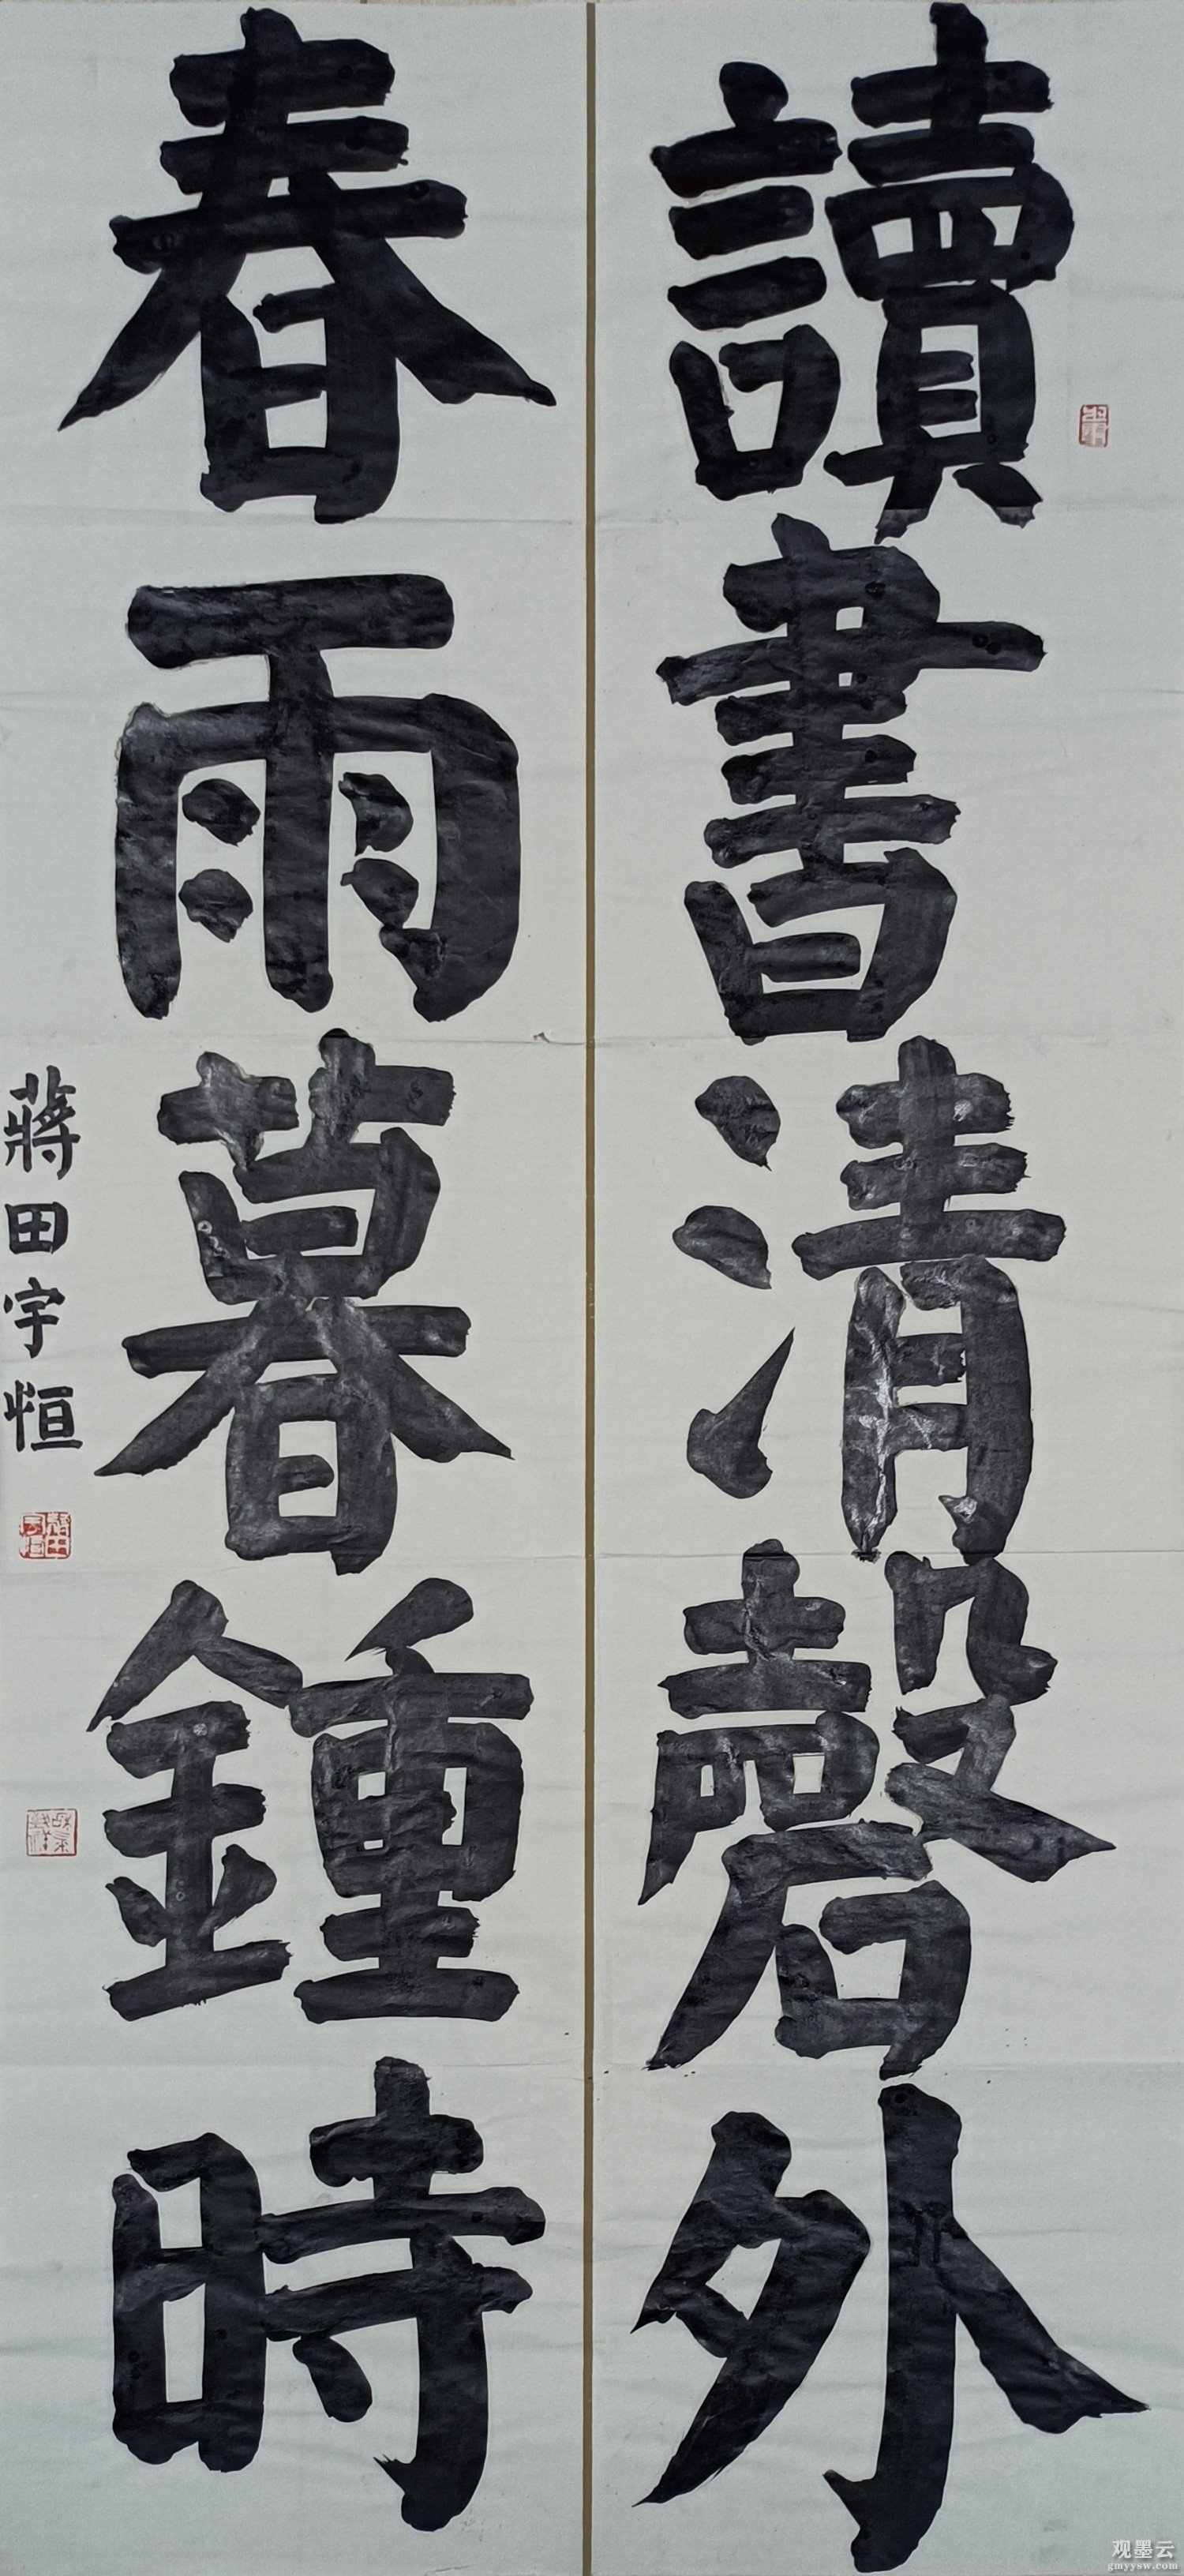 讀書清磬外
春雨暮鍾時
蔣田宇恒
观墨云
gmyysw.com